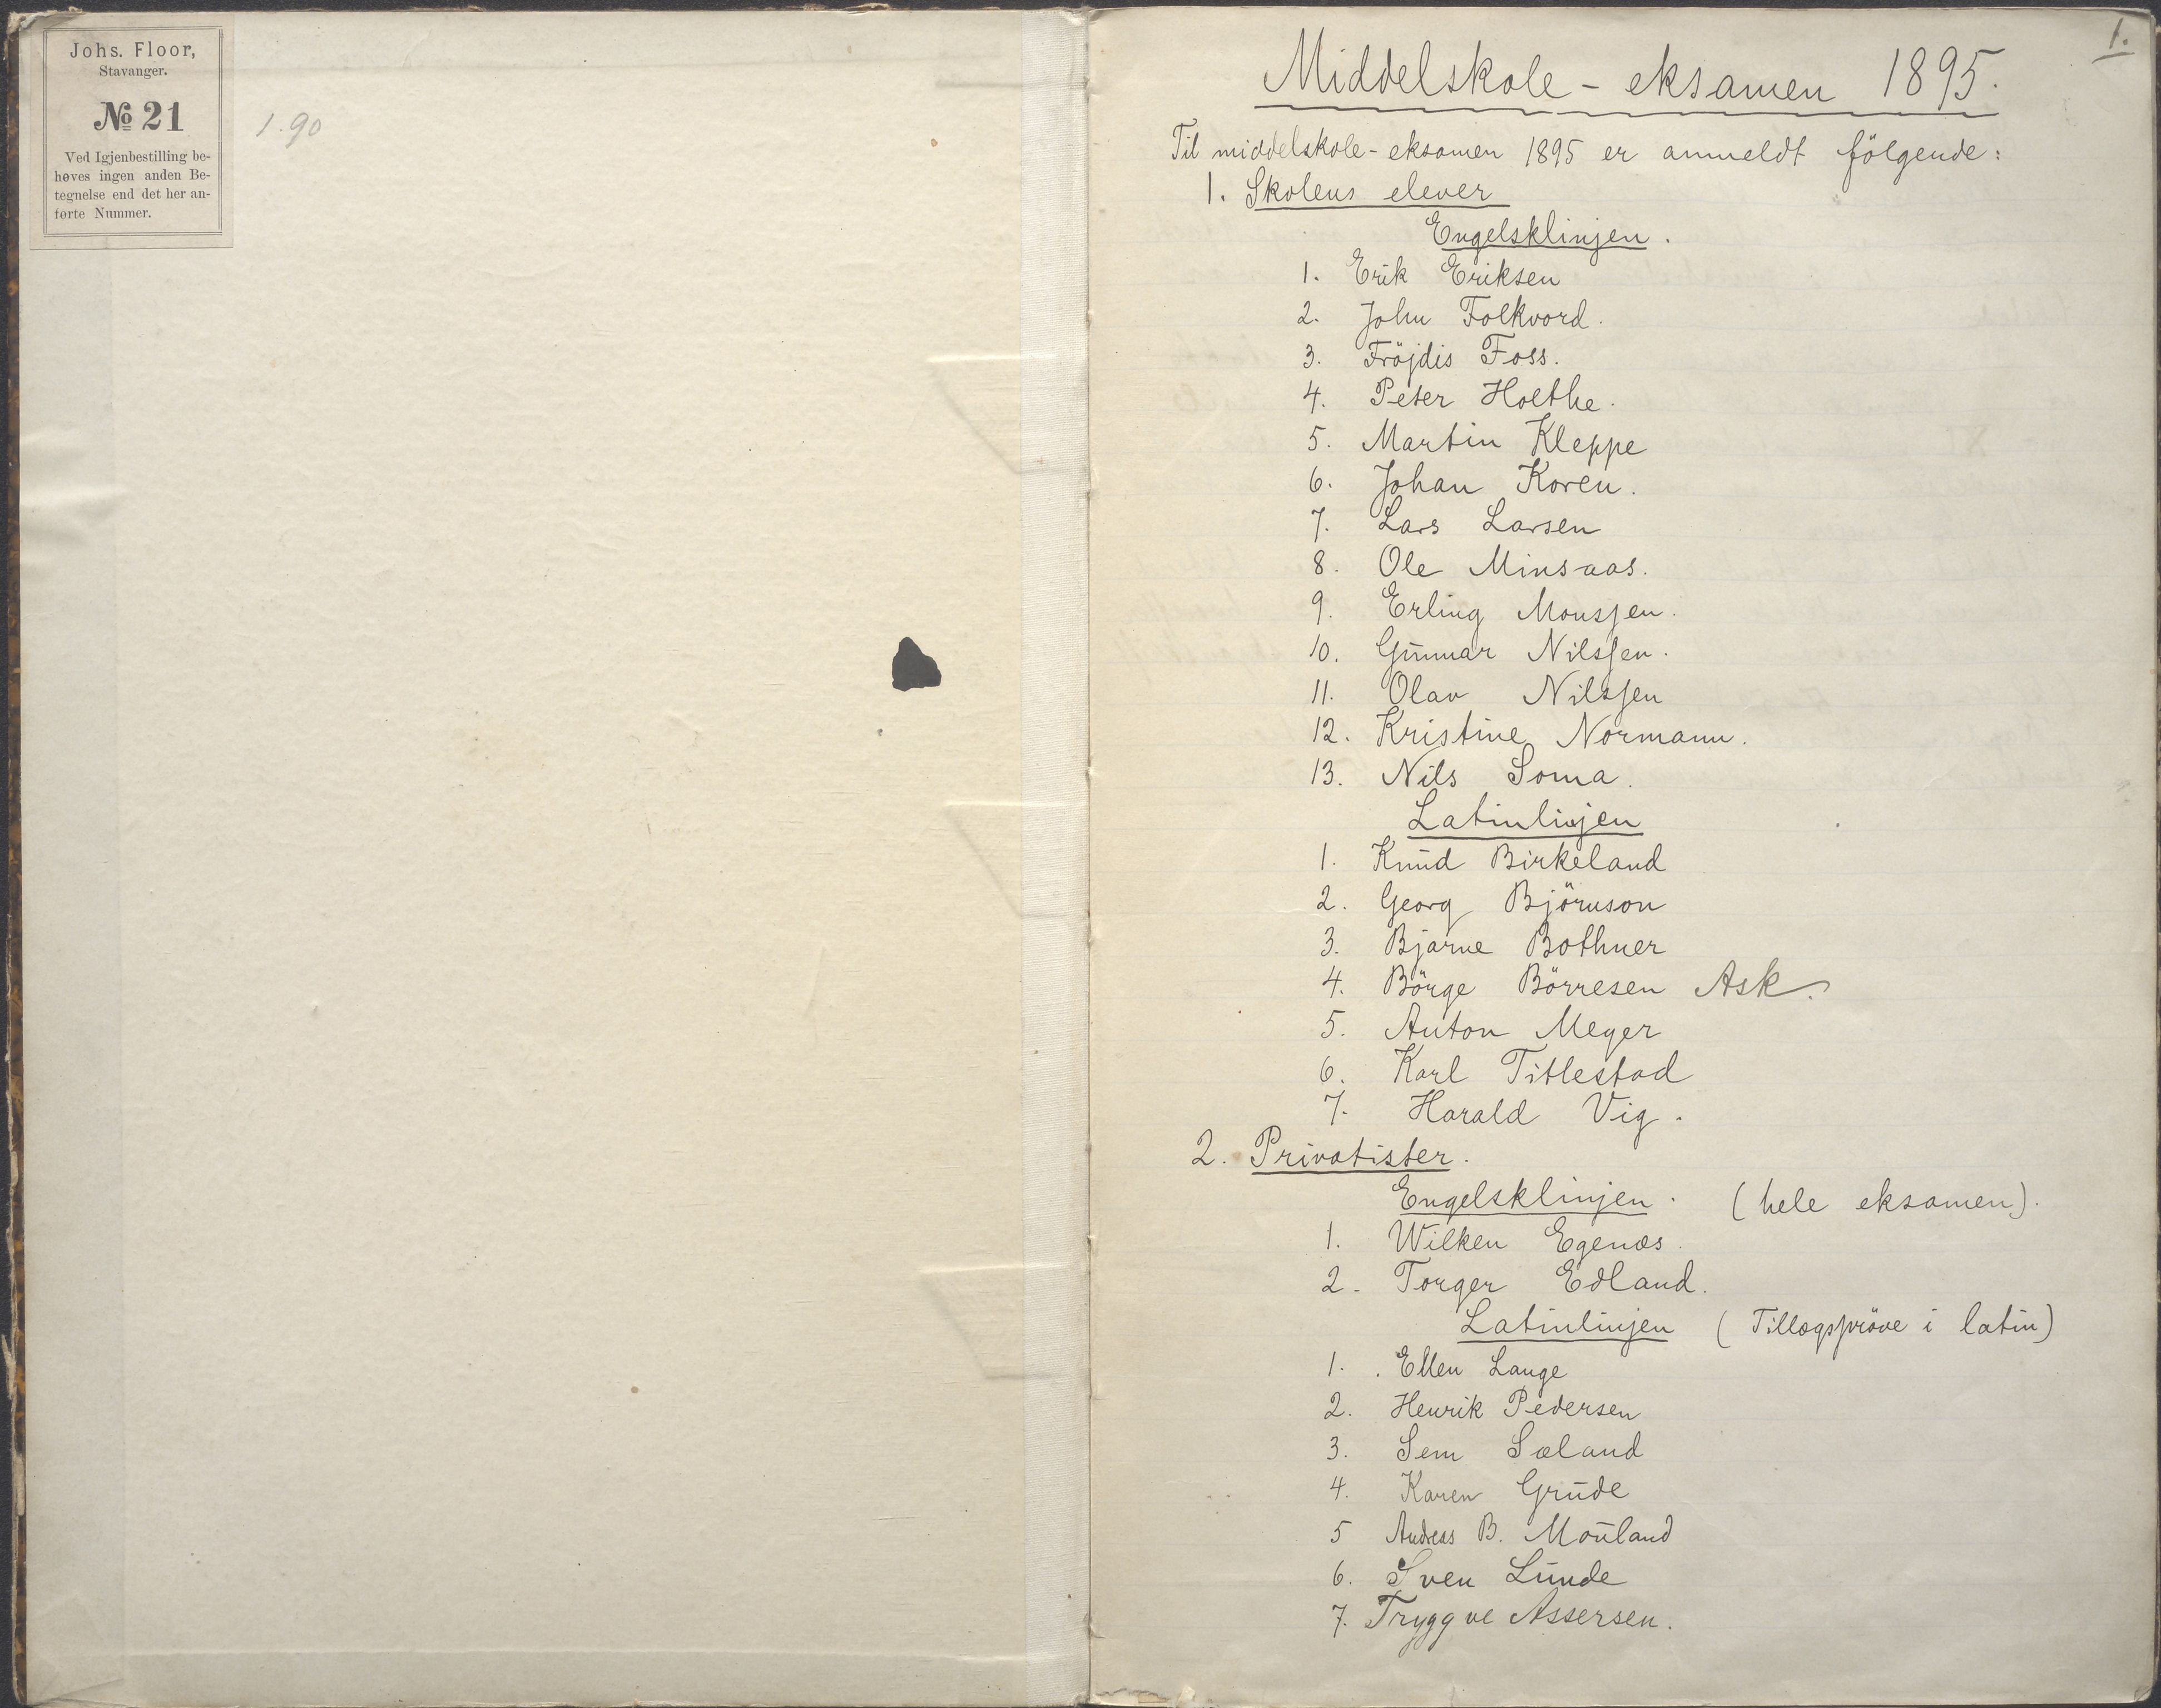 Johs. Floor,
Stavanger.
№ 21
Ved Igjenbestilling be-
høves ingen anden Be-
tegnelse end det her an-
førte Nummer.
1.90
1.
Middelskole-eksamen 1895.
Til middelskole-eksamen 1895 er anmeldt fölgende:
1. Skolens elever
Engelsklinjen.
1. Erik Eriksen
2. John Folkvord.
3. Fröjdis Foss.
4. Peter Holthe.
5. Martin Kleppe
6. Johan Koren.
7. Lars Larsen
8. Ole Minsaas.
9. Erling Monssen.
10. Gunnar Nilssen.
11. Olav Nilssen
12. Kristine Normann.
13. Nils Soma.
Latinlinjen
1. Knud Birkeland
2. Georg Björnson
3. Bjarne Bothner
4. Börge Börresen Ask.
5. Anton Meyer
6. Karl Titlestad
7. Harald Vig.
2. Privatister.
Engelsklinjen. (hele eksamen).
1. Wilken Egenæs.
2. Torger Edland.
Latinlinjen (Tillægspröve i latin)
1. Ellen Lange
2. Henrik Pedersen
3. Sem Sæland
4. Karen Grude
5 Andreas B. Mouland
6. Sven Lunde
7. Tryggve Assersen.